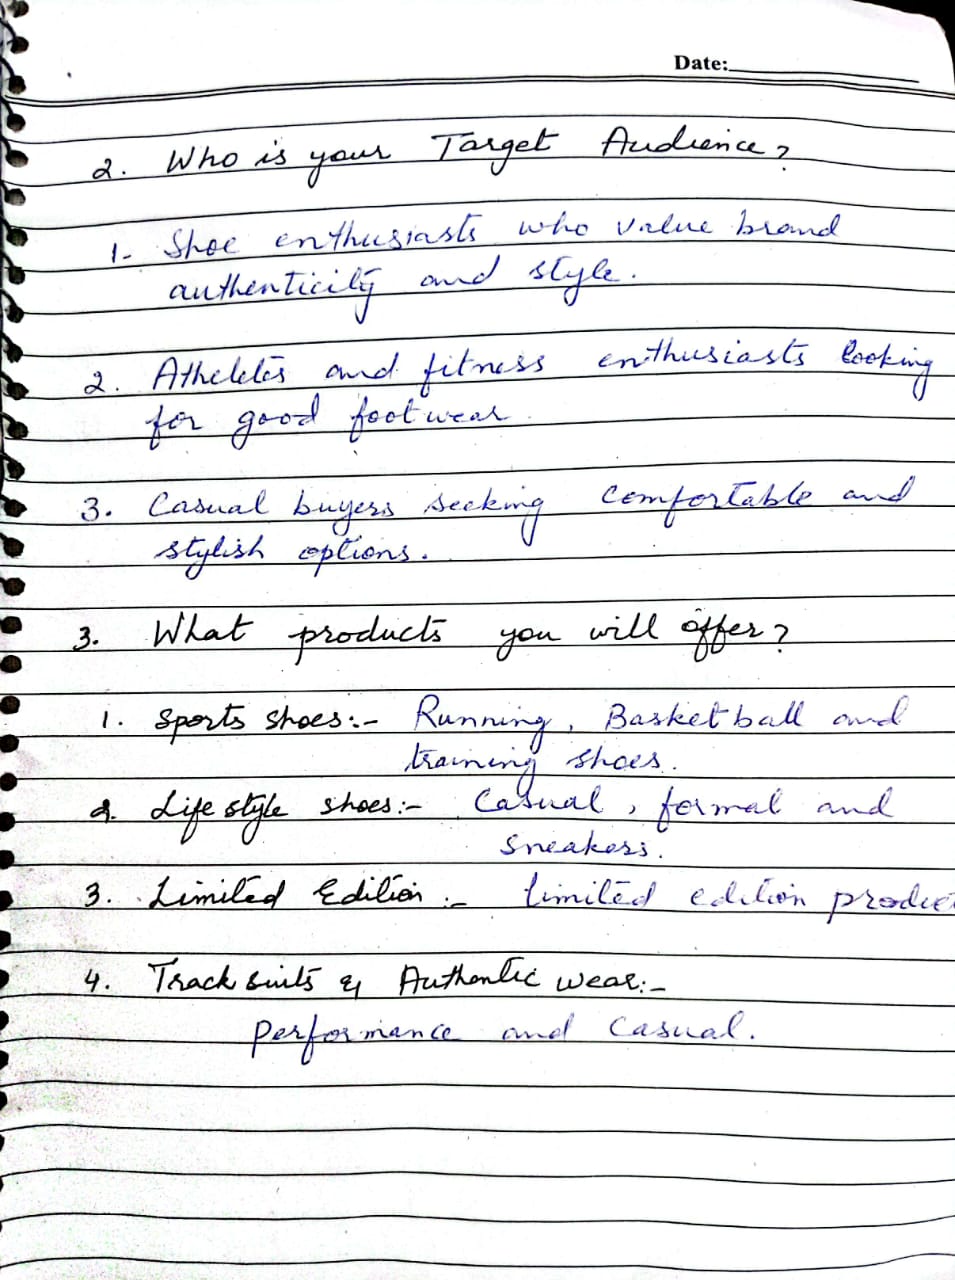 Date:
2. Who is your Target Audience?
1- Shoe enthusiasts who value brand
authenticity and style.
2. Atheletes and fitness enthusiasts looking
for good footwear
3. Casual buyers seeking comfortable and
stylish options.
3. What products you will offer?
1. Sports shoes:- Running, Basket ball and
training shoes.
2. Life style shoes:- Casual, formal and
Sneakers.
3. Limited Edition :- limited edition
4. Track suits & Authentic wear:-
Performance and Casual.